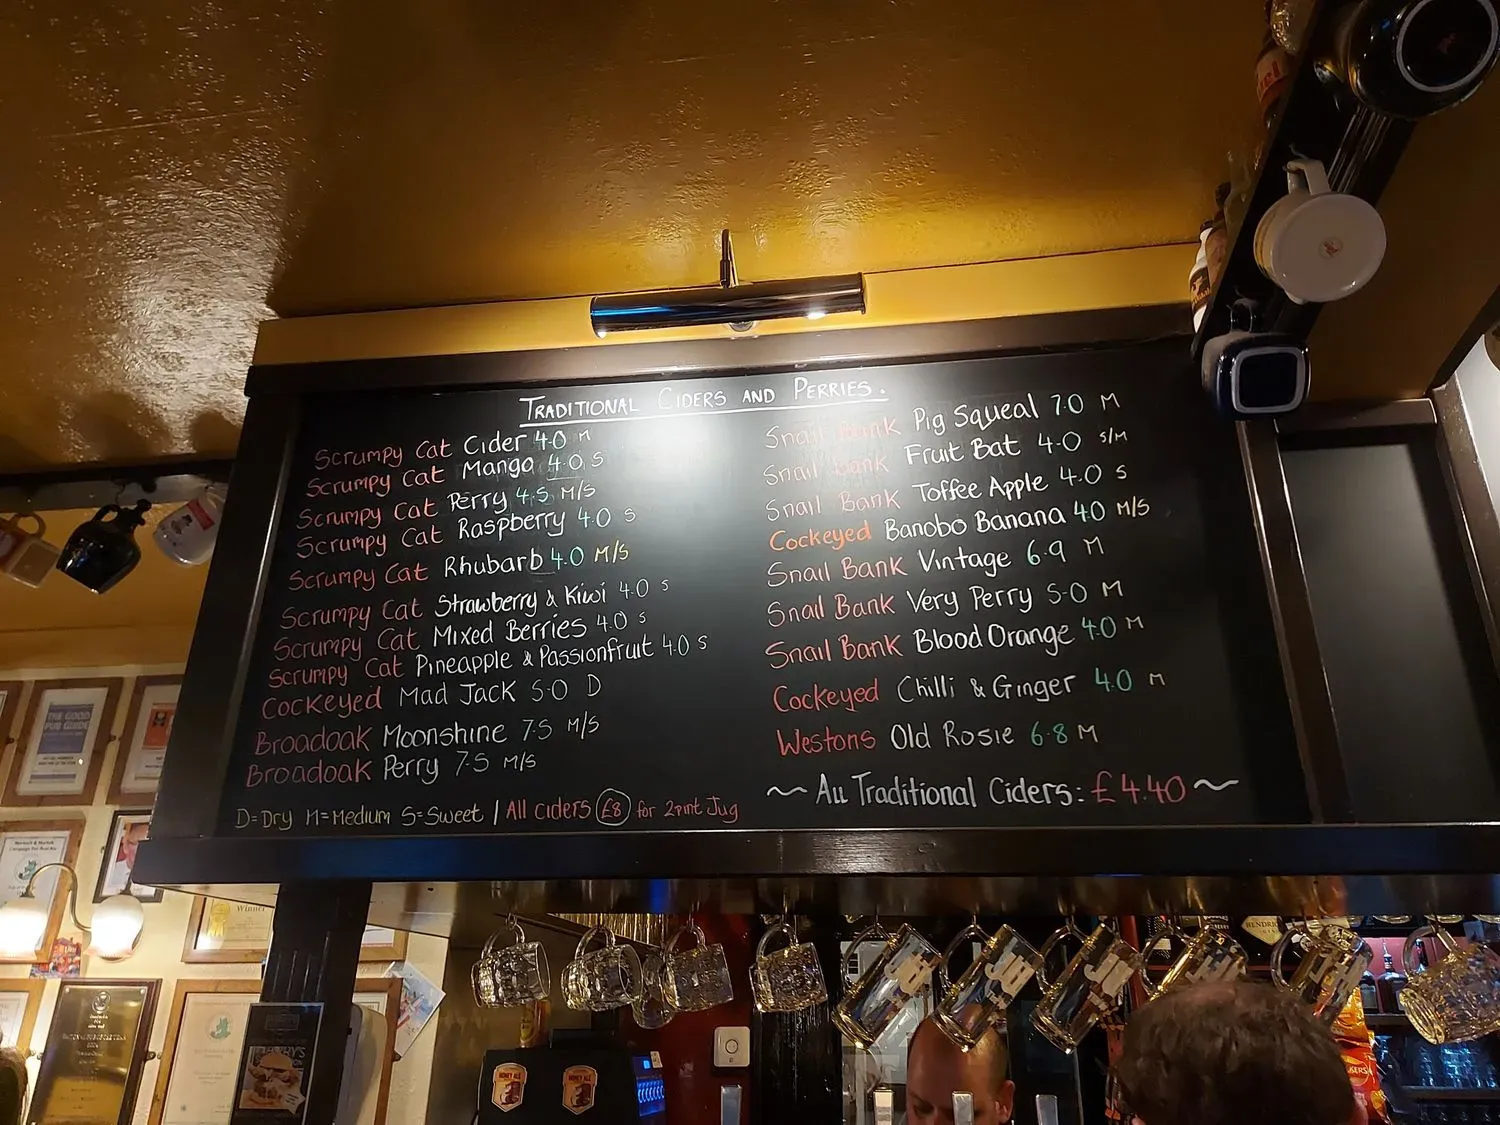 TRADITIONAL CIDERS AND PERRIES.
Scrumpy Cat Cider 4.0 M
Scrumpy Cat Mango 4.0 S
Scrumpy Cat Perry 4.5 M/S
Scrumpy Cat Raspberry 4.0 S
Scrumpy Cat Rhubarb 4.0 M/S
Scrumpy Cat Strawberry & Kiwi 4.0 S
Scrumpy Cat Mixed Berries 4.0 S
Scrumpy Cat Pineapple & Passionfruit 4.0 S
Cockeyed Mad Jack 5.0 D
Broadoak Moonshine 7.5 M/S
Broadoak Perry 7.5 M/S
D=Dry M=Medium S=Sweet | All ciders £8 for 2pint Jug
Snail Bank Pig Squeal 7.0 M
Snail Bank Fruit Bat 4.0 S/M
Snail Bank Toffee Apple 4.0 S
Cockeyed Banobo Banana 4.0 M/S
Snail Bank Vintage 6.9 M
Snail Bank Very Perry 5.0 M
Snail Bank Blood Orange 4.0 M
Cockeyed Chilli & Ginger 4.0 M
Westons Old Rosie 6.8 M
~ All Traditional Ciders: £4.40 ~
THE GOOD
PUB GUIDE
Winner
HONEY ALE
HONEY ALE